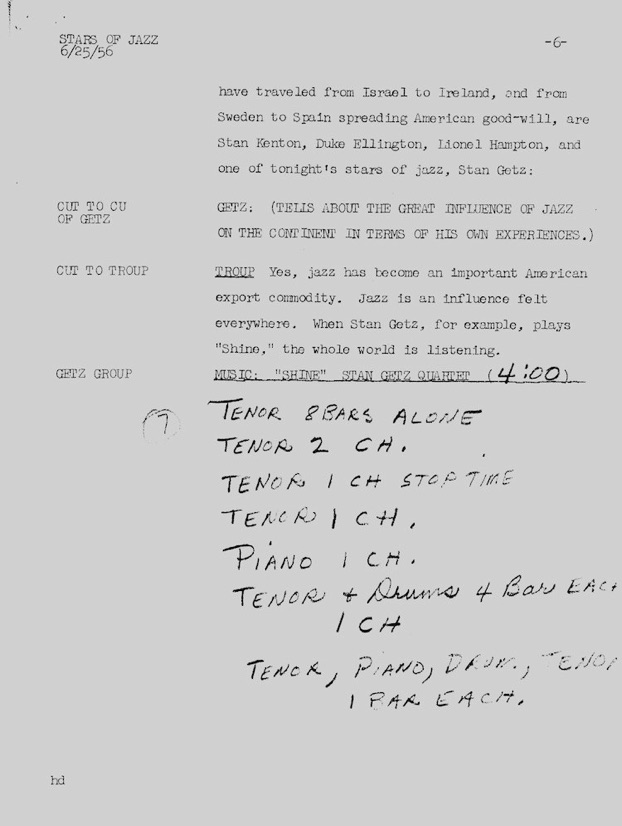 STARS OF JAZZ
6/25/56
-6-
have traveled from Israel to Ireland, and from
Sweden to Spain spreading American good-will, are
Stan Kenton, Duke Ellington, Lionel Hampton, and
one of tonight's stars of jazz, Stan Getz:
CUT TO CU
OF GETZ
GETZ: (TELLS ABOUT THE GREAT INFLUENCE OF JAZZ
ON THE CONTINENT IN TERMS OF HIS OWN EXPERIENCES.)
CUT TO TROUP
TROUP Yes, jazz has become an important American
export commodity. Jazz is an influence felt
everywhere. When Stan Getz, for example, plays
"Shine," the whole world is listening.
GETZ GROUP
MUSIC: "SHINE" STAN GETZ QUARTET (4:00)
7
TENOR 8 BARS ALONE
TENOR 2 CH.
TENOR 1 CH STOP TIME
TENOR 1 CH.
PIANO 1 CH.
TENOR + Drums 4 Bar EACH
1 CH
TENOR, PIANO, DRUM, TENOR
1 BAR EACH.
hd